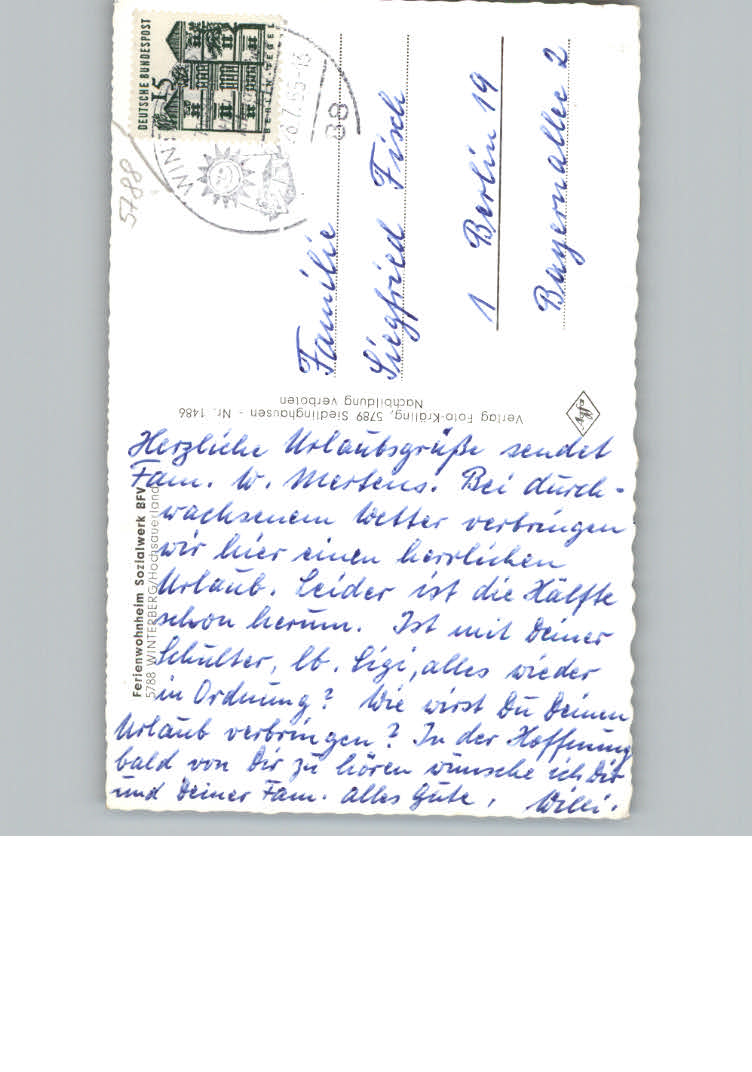 DEUTSCHE BUNDESPOST
15
BERLIN TEGEL
WIN
6.7.65-13
88
5788
Familie
Siegfried Fisch
1 Berlin 19
Bayernallee 2
Agfa
Verlag Foto-Kräling, 5789 Siedlinghausen - Nr. 1486
Nachbildung verboten
Ferienwohnheim Sozialwerk BFV
5788 WINTERBERG/Hochsauerland
Herzliche Urlaubsgrüße sendet
Fam. W. Mertens. Bei durch-
wachsenem Wetter verbringen
wir hier einen herrlichen
Urlaub. Leider ist die Hälfte
schon herum. Ist mit Deiner
Schulter, lb. Sigi, alles wieder
in Ordnung? Wie wirst Du Deinen
Urlaub verbringen? In der Hoffnung
bald von Dir zu hören wünsche ich Dir
und Deiner Fam. alles Gute, Willi.